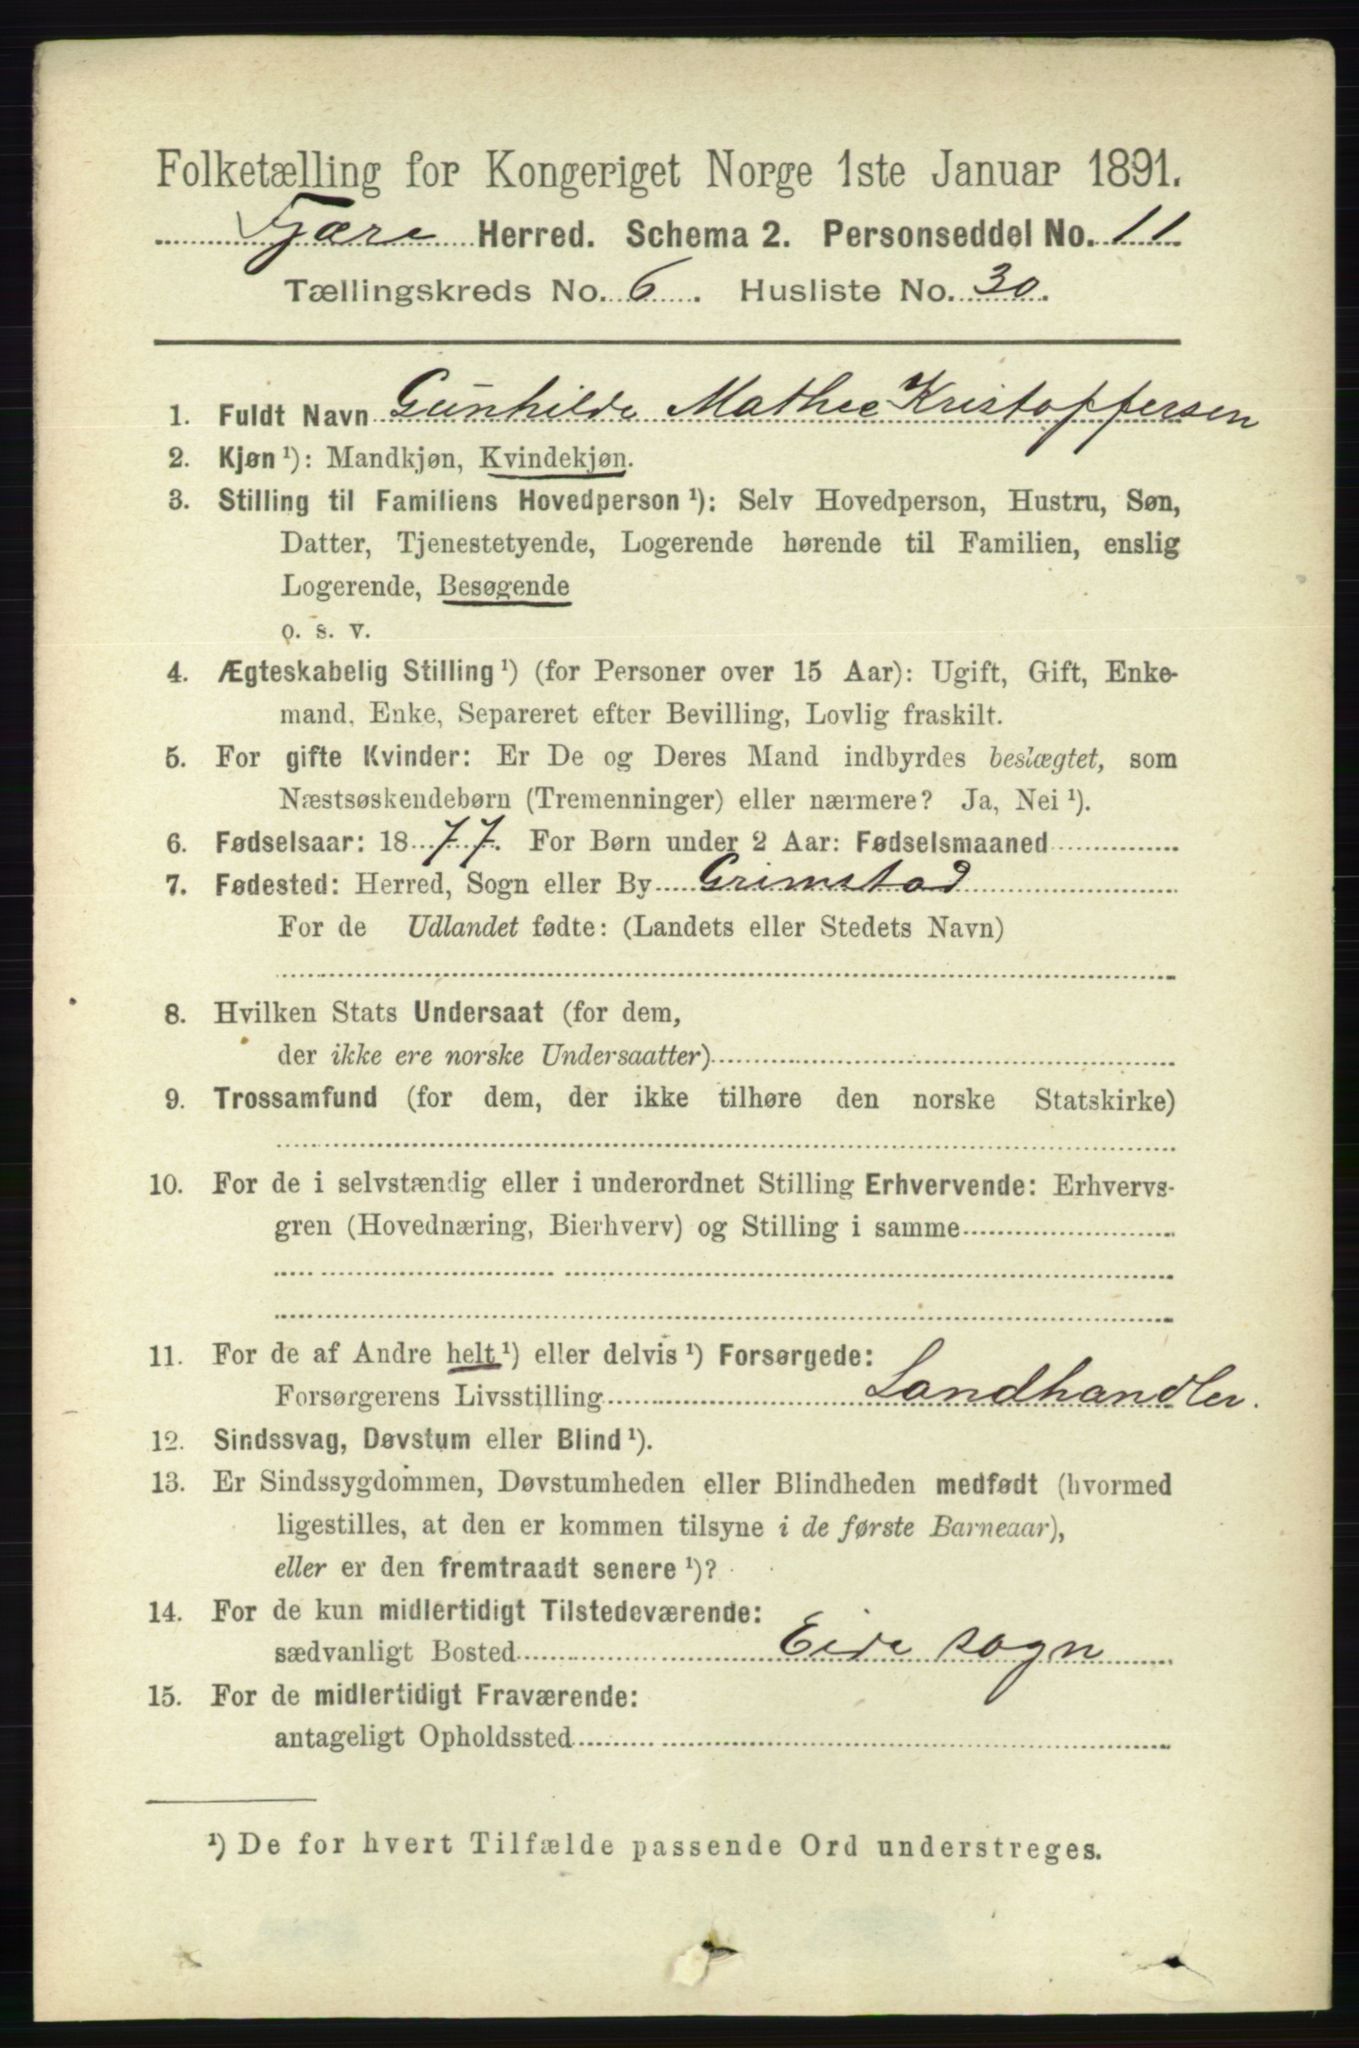 Folketælling for Kongeriget Norge 1ste Januar 1891.
Fjære Herred. Schema 2. Personseddel No. 11
Tællingskreds No. 6. Husliste No. 30.
1. Fuldt Navn Gunhilde Mathee Kristoffersen
2. Kjøn ¹): Mandkjøn, Kvindekjøn.
3. Stilling til Familiens Hovedperson ¹): Selv Hovedperson, Hustru, Søn,
Datter, Tjenestetyende, Logerende hørende til Familien, enslig
Logerende, Besøgende
o. s. v.
4. Ægteskabelig Stilling ¹) (for Personer over 15 Aar): Ugift, Gift, Enke-
mand, Enke, Separeret efter Bevilling, Lovlig fraskilt.
5. For gifte Kvinder: Er De og Deres Mand indbyrdes beslægtet, som
Næstsøskendebørn (Tremenninger) eller nærmere? Ja, Nei ¹).
6. Fødselsaar: 1877. For Børn under 2 Aar: Fødselsmaaned
7. Fødested: Herred, Sogn eller By Grimstad
For de Udlandet fødte: (Landets eller Stedets Navn)
8. Hvilken Stats Undersaat (for dem,
der ikke ere norske Undersaatter)
9. Trossamfund (for dem, der ikke tilhøre den norske Statskirke)
10. For de i selvstændig eller i underordnet Stilling Erhvervende: Erhvervs-
gren (Hovednæring, Bierhverv) og Stilling i samme
11. For de af Andre helt ¹) eller delvis ¹) Forsørgede:
Forsørgerens Livsstilling Landhandler.
12. Sindssvag, Døvstum eller Blind ¹).
13. Er Sindssygdommen, Døvstumheden eller Blindheden medfødt (hvormed
ligestilles, at den er kommen tilsyne i de første Barneaar),
eller er den fremtraadt senere ¹)?
14. For de kun midlertidigt Tilstedeværende:
sædvanligt Bosted Eide sogn
15. For de midlertidigt Fraværende:
antageligt Opholdssted
¹) De for hvert Tilfælde passende Ord understreges.